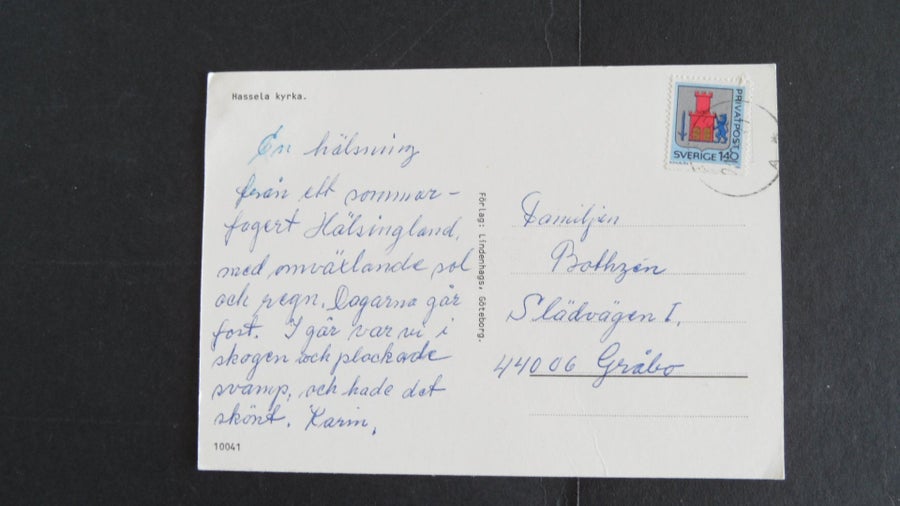 Hassela kyrka.
En hälsning
från ett sommar-
fagert Hälsingland,
med omväxlande sol
och regn. Dagarna går
fort. I går var vi i
skogen och plockade
svamp, och hade det
skönt. Karin,
10041
Förlag: Lindenhags, Göteborg.
PRIVATPOST
SVERIGE 140
Familjen
Bothzén
Slädvägen 1,
44006 Gråbo